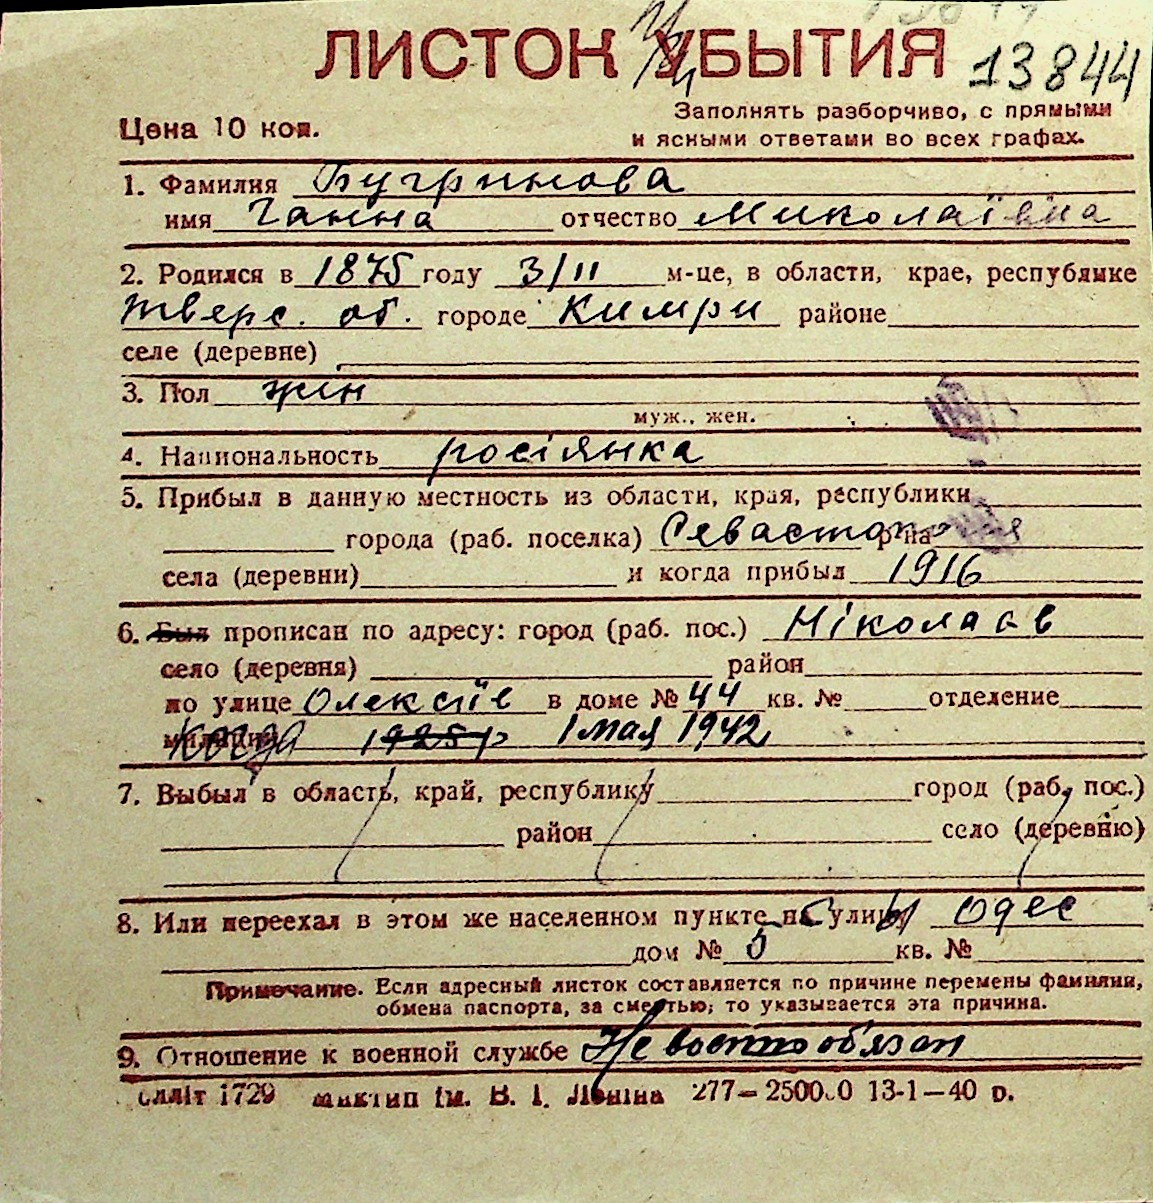 ЛИСТОК УБЫТИЯ
13844
Цена 10 коп.
Заполнять разборчиво, с прямыми
и ясными ответами во всех графах.
1. Фамилия Бугринова
имя Ганна отчество Миколаївна
2. Родился в 1875 году 3/II м-це, в области, крае, республике
Тверс. об. городе Кимри районе
селе (деревне)
3. Пол жін
муж., жен.
4. Национальность росіянка
5. Прибыл в данную местность из области, края, республики
города (раб. поселка) Севастополя р-на
села (деревни) и когда прибыл 1916
6. Был прописан по адресу: город (раб. пос.) Ніколаєв
село (деревня) район
по улице Олексіїв в доме № 44 кв. № отделение
милиции когда 1925 р 1 мая 1942
7. Выбыл в область, край, республику город (раб. пос.)
район село (деревню)
8. Или переехал в этом же населенном пункте на улицу Одес
дом № 5 кв. №
Примечание. Если адресный листок составляется по причине перемены фамилии,
обмена паспорта, за смертью, то указывается эта причина.
9. Отношение к военной службе Не военнообязан
1729 ім. В. І. Леніна 277— 13-1—40 р.